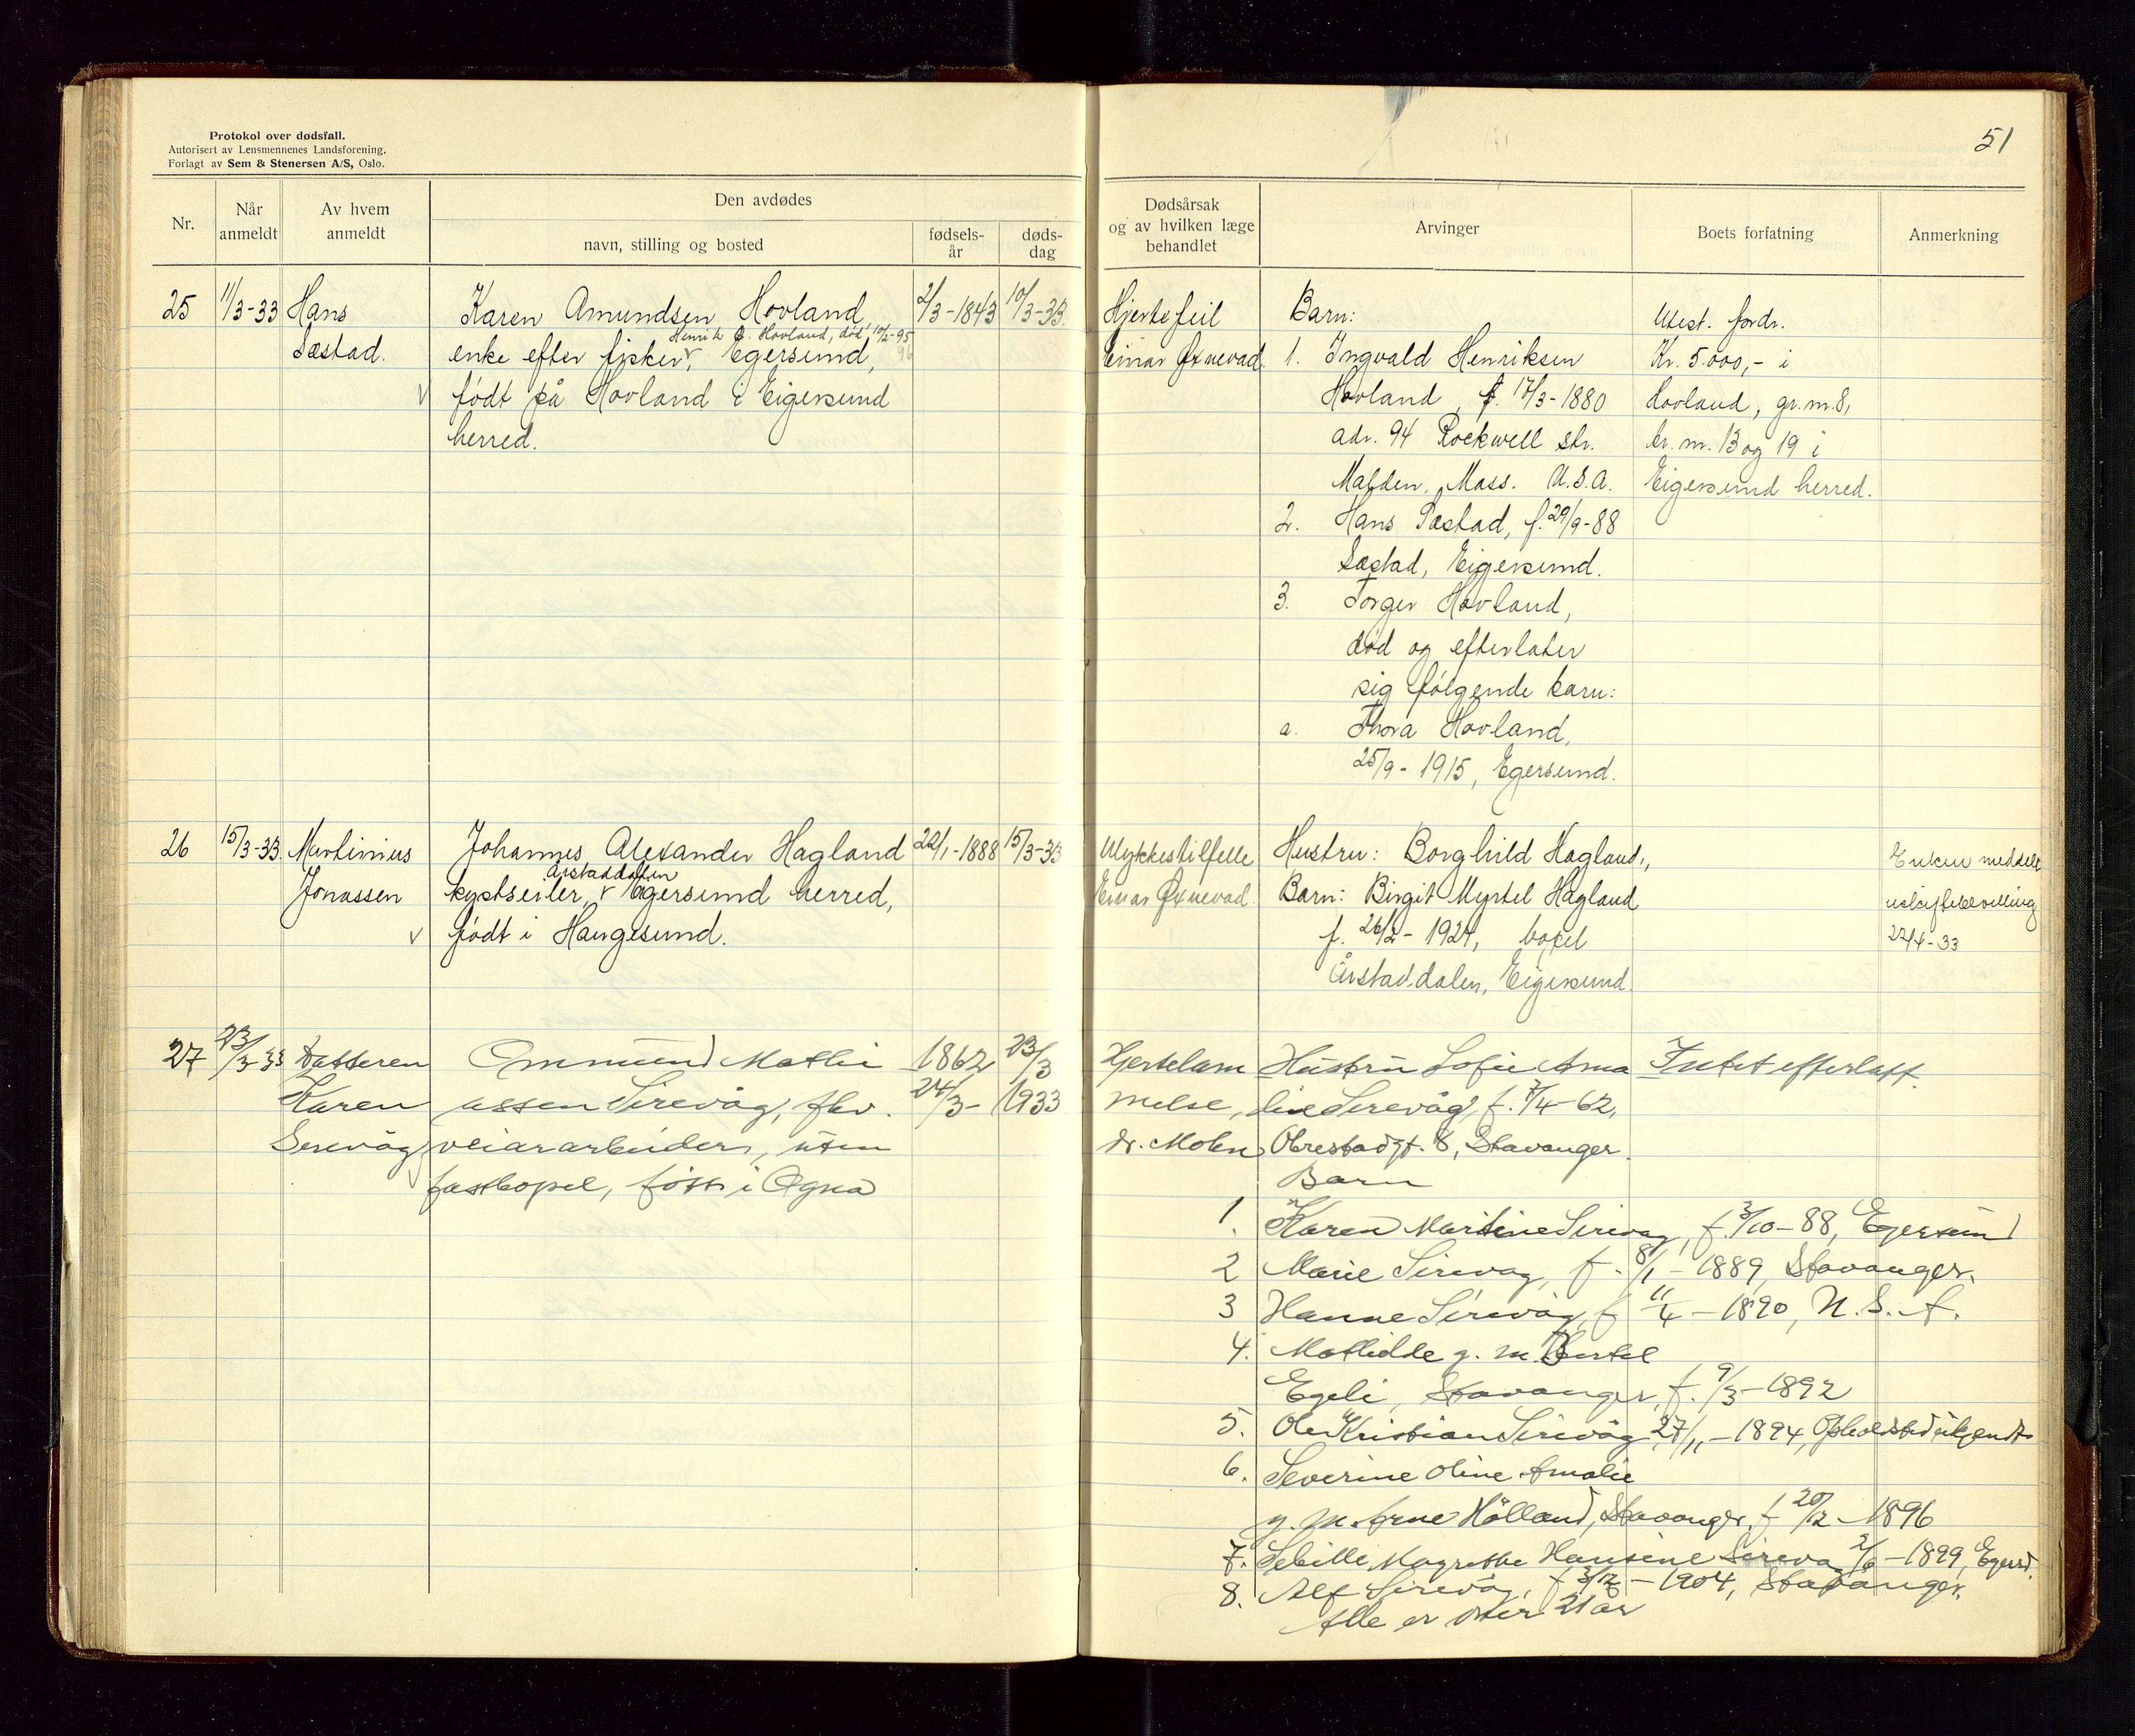 Protokol over dødsfall.
Autorisert av Lensmennenes Landsforening.
Forlagt av Sem & Stenersen A/S, Oslo.
51
Nr.
Når anmeldt
Av hvem anmeldt
Den avdødes
navn, stilling og bosted
fødsels-år
døds-dag
Dødsårsak og av hvilken læge behandlet
Arvinger
Boets forfatning
Anmerkning
25
11/3-33
Hans
Sæstad.
Karen Amundsen Hovland,
Henrik O. Hovland, død 10/2-95
96
enke efter fisker, v Egersund,
v født på Hovland i Eigersund
herred.
2/3-1843
10/3-33.
Hjertefeil
Einar Øxnevad.
Barn:
1. Ingvald Henriksen
Hovland, f. 17/3-1880
adr. 94 Rockwell str.
Malden, Mass. U.S.A.
2. Hans Sæstad, f. 29/9-88
Sæstad, Eigersund.
3. Torger Hovland,
død og efterlater
sig følgende barn:
a. Thora Hovland,
25/9-1915, Egersund.
Utest. fordr.
Kr. 5.000,- i
Hovland, gr.nr. 8,
br.nr. 13 og 19 i
Eigersund herred.
26
15/3-33.
Martinius
Jonassen
Johannes Alexander Hagland
Årstaddalen
kystseiler, v Egersund herred,
v født i Haugesund.
22/1-1888
15/3-33
Ulykkestilfelle
Einar Øxnevad.
Hustru: Borghild Hagland,
Barn: Birgit Myrtel Hagland
f. 26/2-1924, bopel
Årstaddalen, Eigersund.
Enken meddelt
uskiftebevilling
22/4-33
27
23/3-33
Datteren
Karen
Sirevåg
Ommund Mathi
assen Sirevåg, fhv.
veiarbeider, uten
fast bopel, født i Ogna
1862
24/3-
23/3
1933
Hjertelam
melse,
dr. Mohn
Hustru Sofie Ama
lie Sirevåg, f. 7/4-62,
Obrestadgt. 8, Stavanger.
Barn
Intet efterlatt.
1. Karen Martine Sirevåg, f. 3/10-88, Egersund
2 Marie Sirevåg, f. 8/1-1889, Stavanger.
3 Hanne Sirevåg, f 11/4-1890, U.S.A.
4. Mathilde g. m. Bertel
Egeli, Stavanger, f. 9/3-1892
5. Ole Kristian Sirevåg 27/11-1894, Opholdsted ukjendt
6. Severine Oline Amalie
g. m. Arne Hålland, Stavanger, f 20/12-1896
7. Sebille Magrethe Hansine Sireva 2/6-1899, Egersd.
8. Alf Sirevåg, f 3/12-1904, Stavanger.
Alle er over 21 år